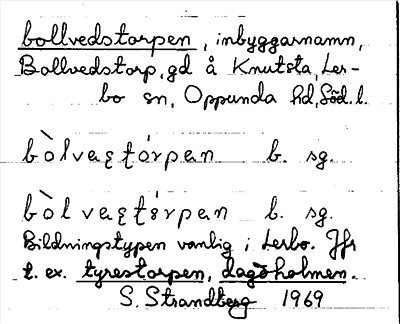 bollvedstorpen, inbyggarnamn,
Bollvedstorp, gd å Knutsta, Ler-
bo sn, Oppunda hd, Söd. l.
bòlvaʂtórpan b. sg.
bòlvaʂtórpan b. sg.
Bildningstypen vanlig i Lerbo. Jfr
t. ex. tyrestorpen, dagöholmen.
S. Strandberg 1969